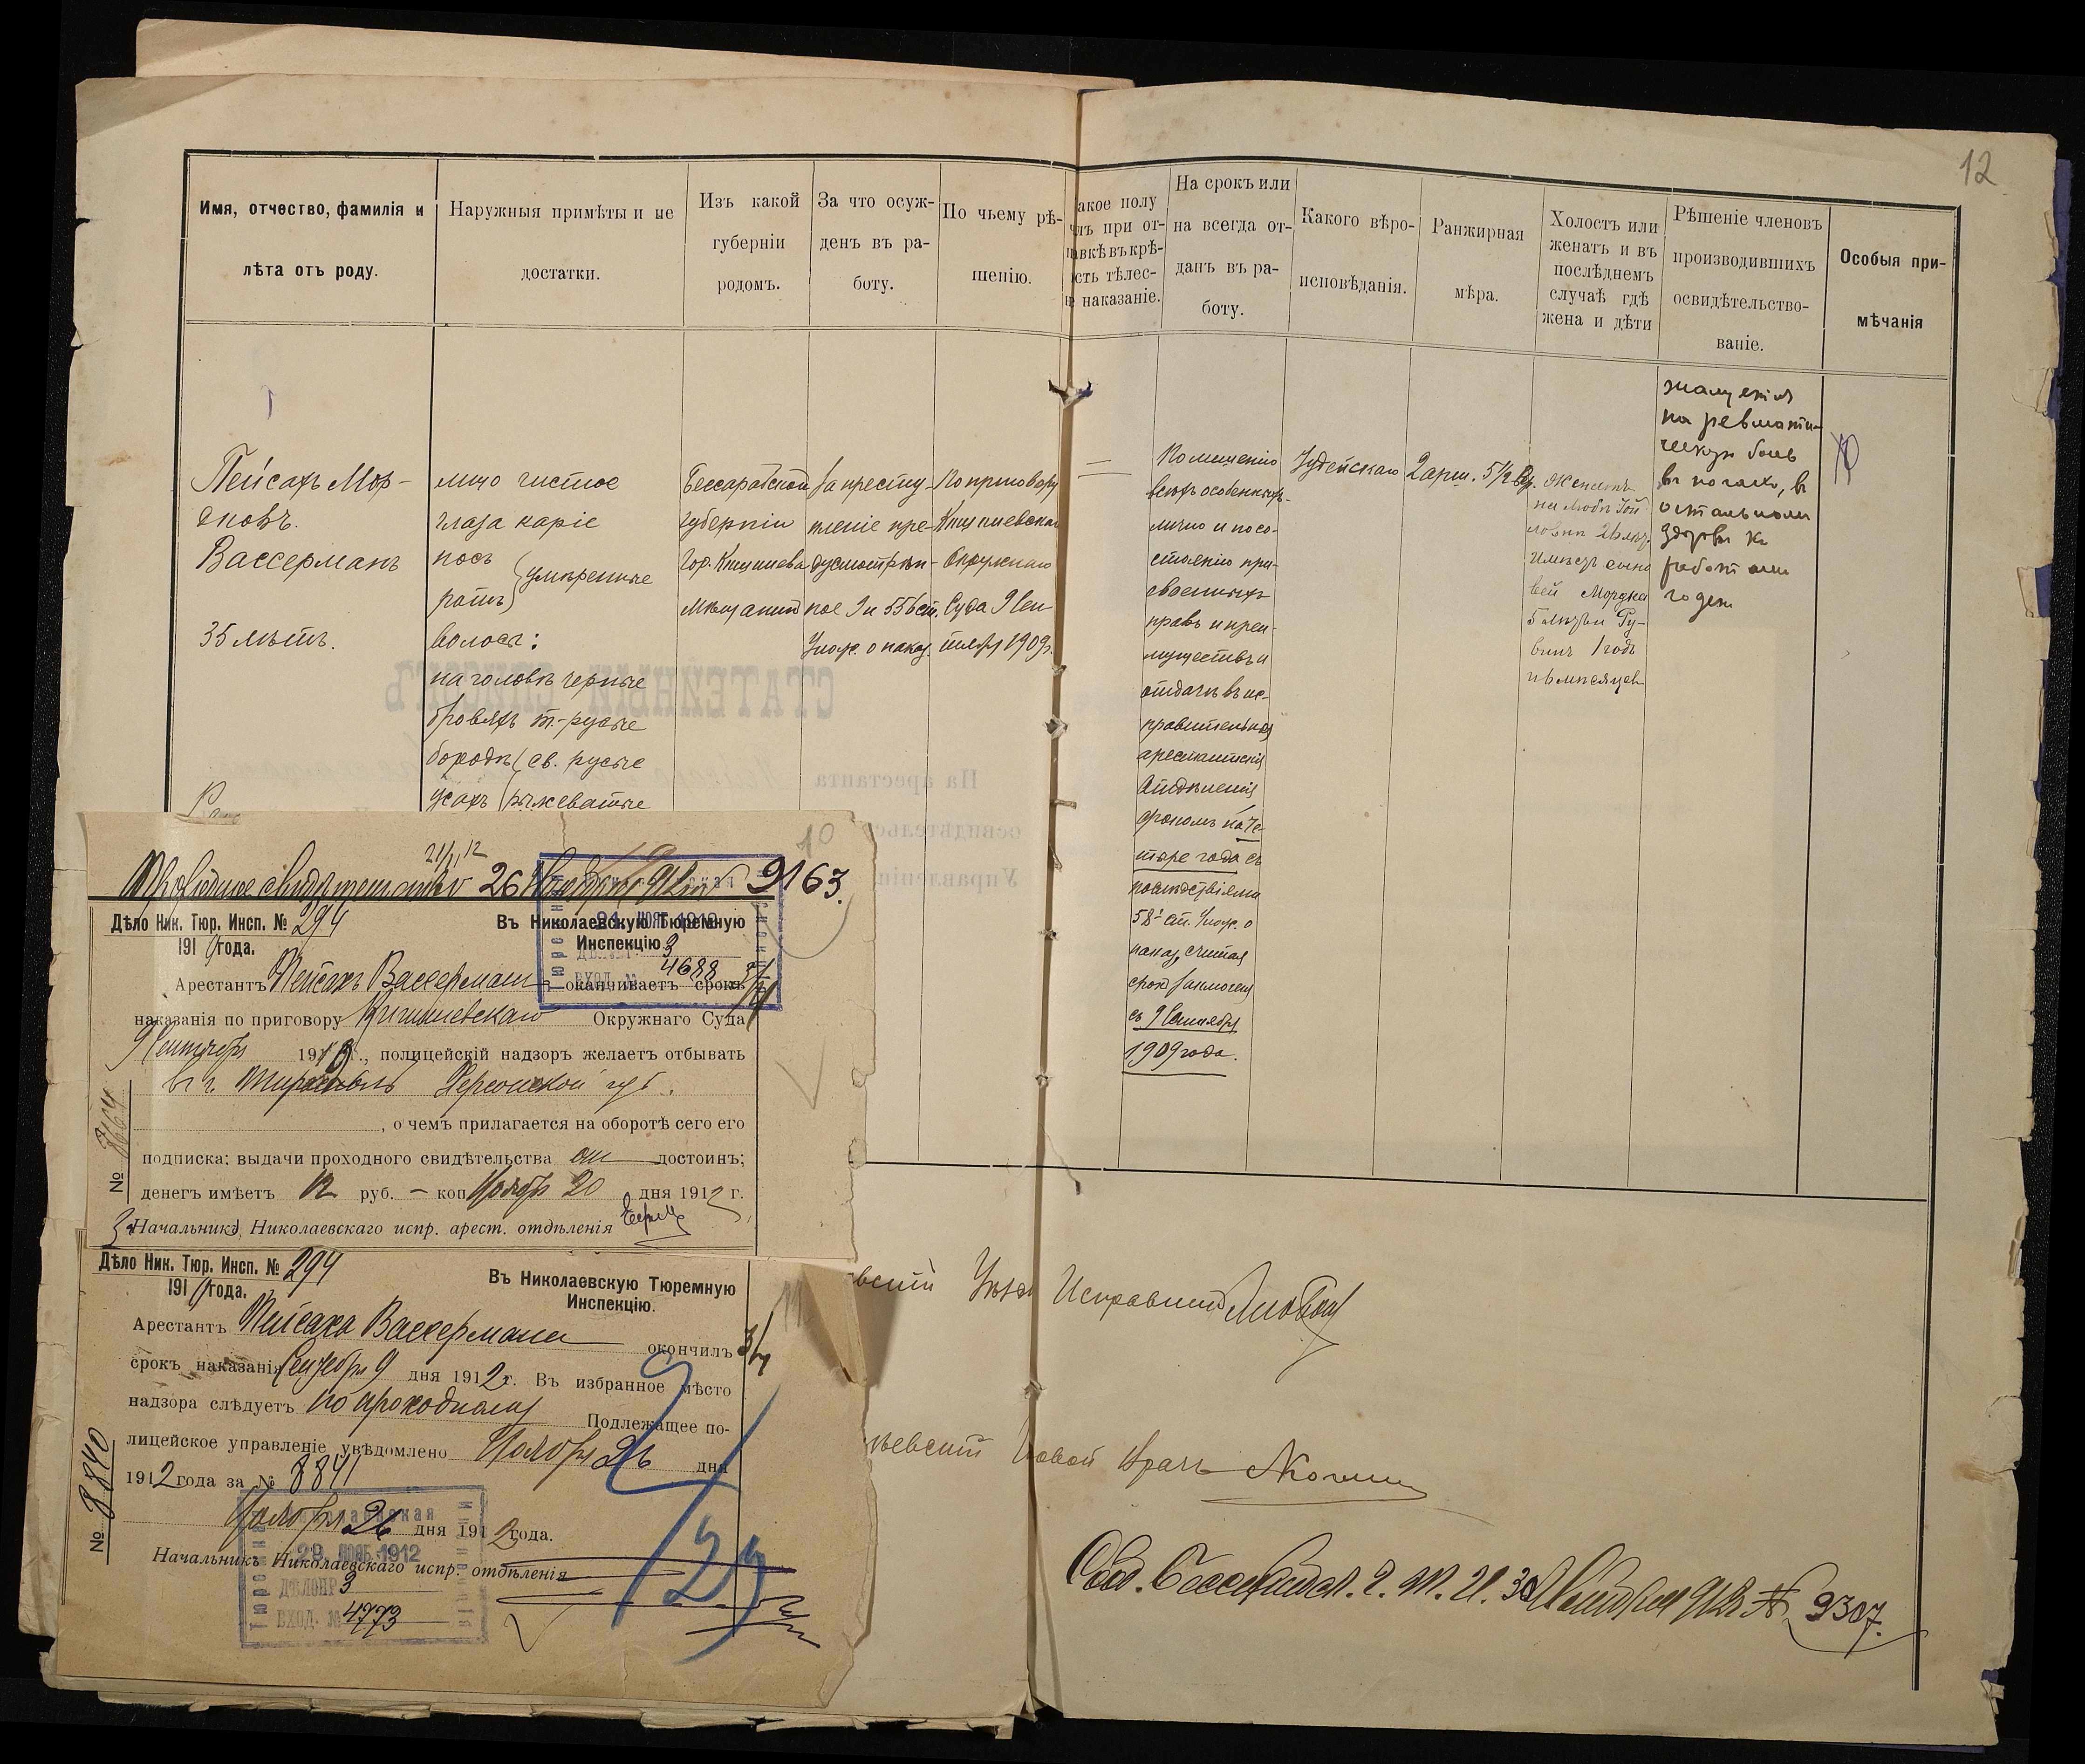 12
Имя, отчество, фамилія и
лѣта отъ роду.
Наружныя примѣты и не
достатки.
Изъ какой
губерніи
родомъ.
За что осуж-
денъ въ ра-
боту.
По чьему рѣ-
шенію.
акое полу
при от-
вкѣ въ крѣ-
сть тѣлес-
наказаніе.
На срокъ или
на всегда от-
данъ въ ра-
боту.
Какого вѣро-
исповѣданія.
Ранжирная
мѣра.
Холостъ или
женатъ и въ
послѣднемъ
случаѣ гдѣ
жена и дѣти
Рѣшеніе членовъ
производившихъ
освидѣтельство-
ваніе.
Особыя при-
мѣчанія
Пейсахъ Мор-
дковъ.
Вассерманъ
35 лѣтъ.
лицо чистое
глаза каріе
носъ
ротъ } умѣренные
волосы:
на головѣ черные
бровяхъ т.-русые
бородѣ св. русые
усахъ рыжеватые
Бессарабской
губерніи
гор. Кишинева
мѣщанинъ
За престу-
пленіе пре-
дусмотрѣн-
ное 9 и 556 ст.
Улож. о наказ.
По приговору
Кишиневскаго
Окружнаго
Суда 9 Сен-
тября 1909 г.
—
По лишенію
всѣхъ особенныхъ
лично и по со-
стоянію при-
своенныхъ
правъ и преи-
муществъ и
отдачѣ въ ис-
правительныя
арестантскія
отдѣленія
срокомъ на че-
тыре года съ
послѣдствіями
58¹ ст. Улож. о
наказ, считая
срокъ заключенія
съ 9 Сентября
1909 года.
Іудейскаго
2 арш. 5½ в.
Женатъ
имѣетъ сыно
вей Мордка
5 лѣтъ и Ру-
вина 1 годъ
мѣсяцев
жалуется
на ревмати-
ческую боль
въ ногахъ, въ
остальномъ
здоровъ къ
работамъ
годен
10
21/11 12
Проходное свидѣтельство 26 Ноября 912 № 9163.
Дѣло Ник. Тюр. Инсп. № 294
191 года.
Въ Николаевскую Тюремную
Инспекцію.
21 НОЯБ 1912
3
ВХОД. № 4688
Арестантъ Пейсахъ Вассерманъ оканчиваетъ срокъ
наказанія по приговору Кишиневскаго Окружнаго Суда
9 Сентября 191 г., полицейскій надзоръ желаетъ отбывать
въ г. Тирасполь Херсонской губ.
, о чемъ прилагается на оборотѣ сего его
подписка; выдачи проходного свидѣтельства он достоинъ;
денегъ имѣетъ 12 руб. – коп Ноября 20 дня 1912 г.
Начальникъ Николаевскаго испр. арест. отдѣленія
№ 8664
Дѣло Ник. Тюр. Инсп. № 294
191 года.
Въ Николаевскую Тюремную
Инспекцію.
11
Арестантъ Пейсахъ Вассерманъ окончилъ
срокъ наказанія Сентября 9 дня 1912 г. Въ избранное мѣсто
надзора слѣдуетъ по проходному Подлежащее по-
лицейское управленіе увѣдомлено Ноября 26 дня
1912 года за № 8841
Ноября 26 дня 1912 года.
Начальникъ Николаевскаго испр. отдѣленія
№ 8840
29 НОЯБ 1912
ДѢЛОПР. 3
ВХОД. № 4773
Исправникъ
Врачъ
30 Ноября 912 № 9307.